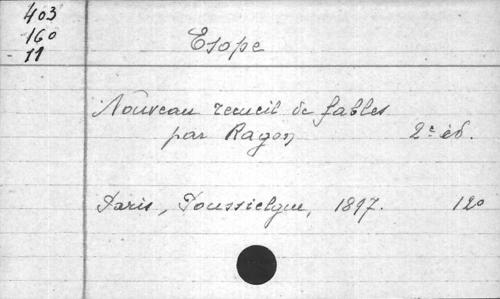 403
160
- 11
Esope
Nouveau recueil de fables
par Ragon 2e éd.
Paris, Poussielgue, 1897. 12o